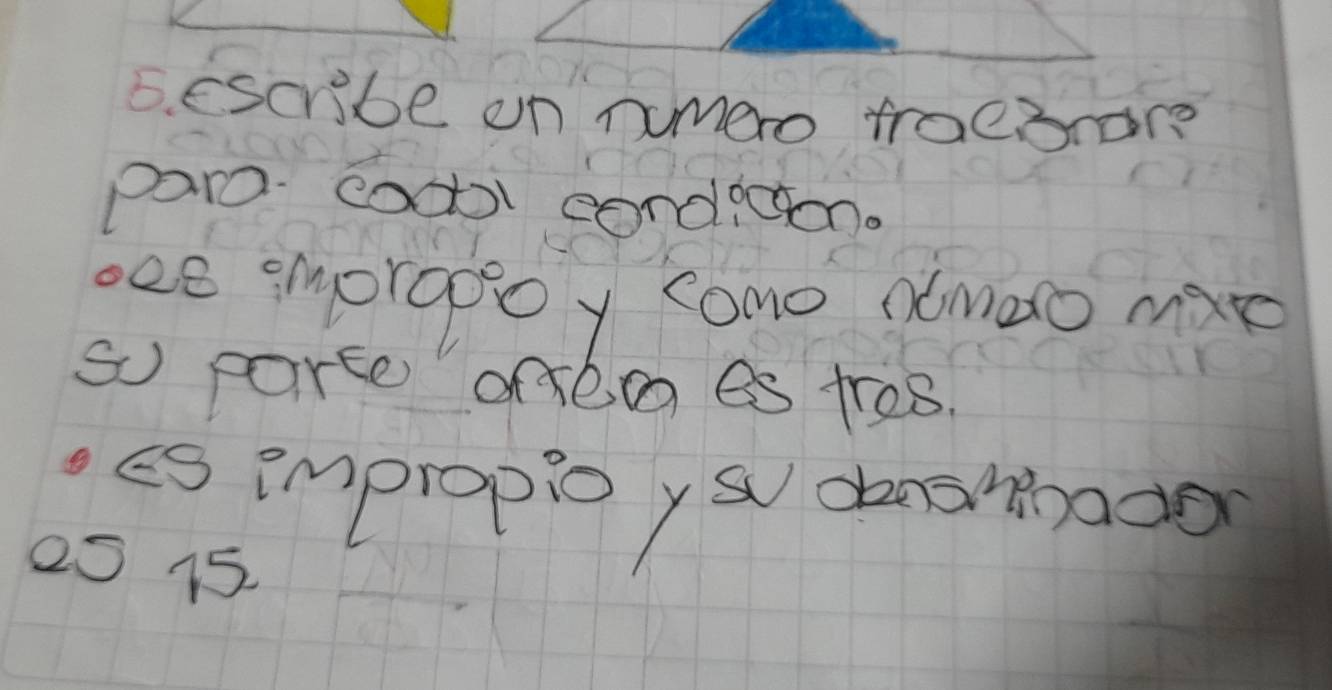 5. escribe un numero fracionario
para cada condicion.
• es impropio y como número mixto
su parte entera es tres.
• es impropio y su denominador
es 15